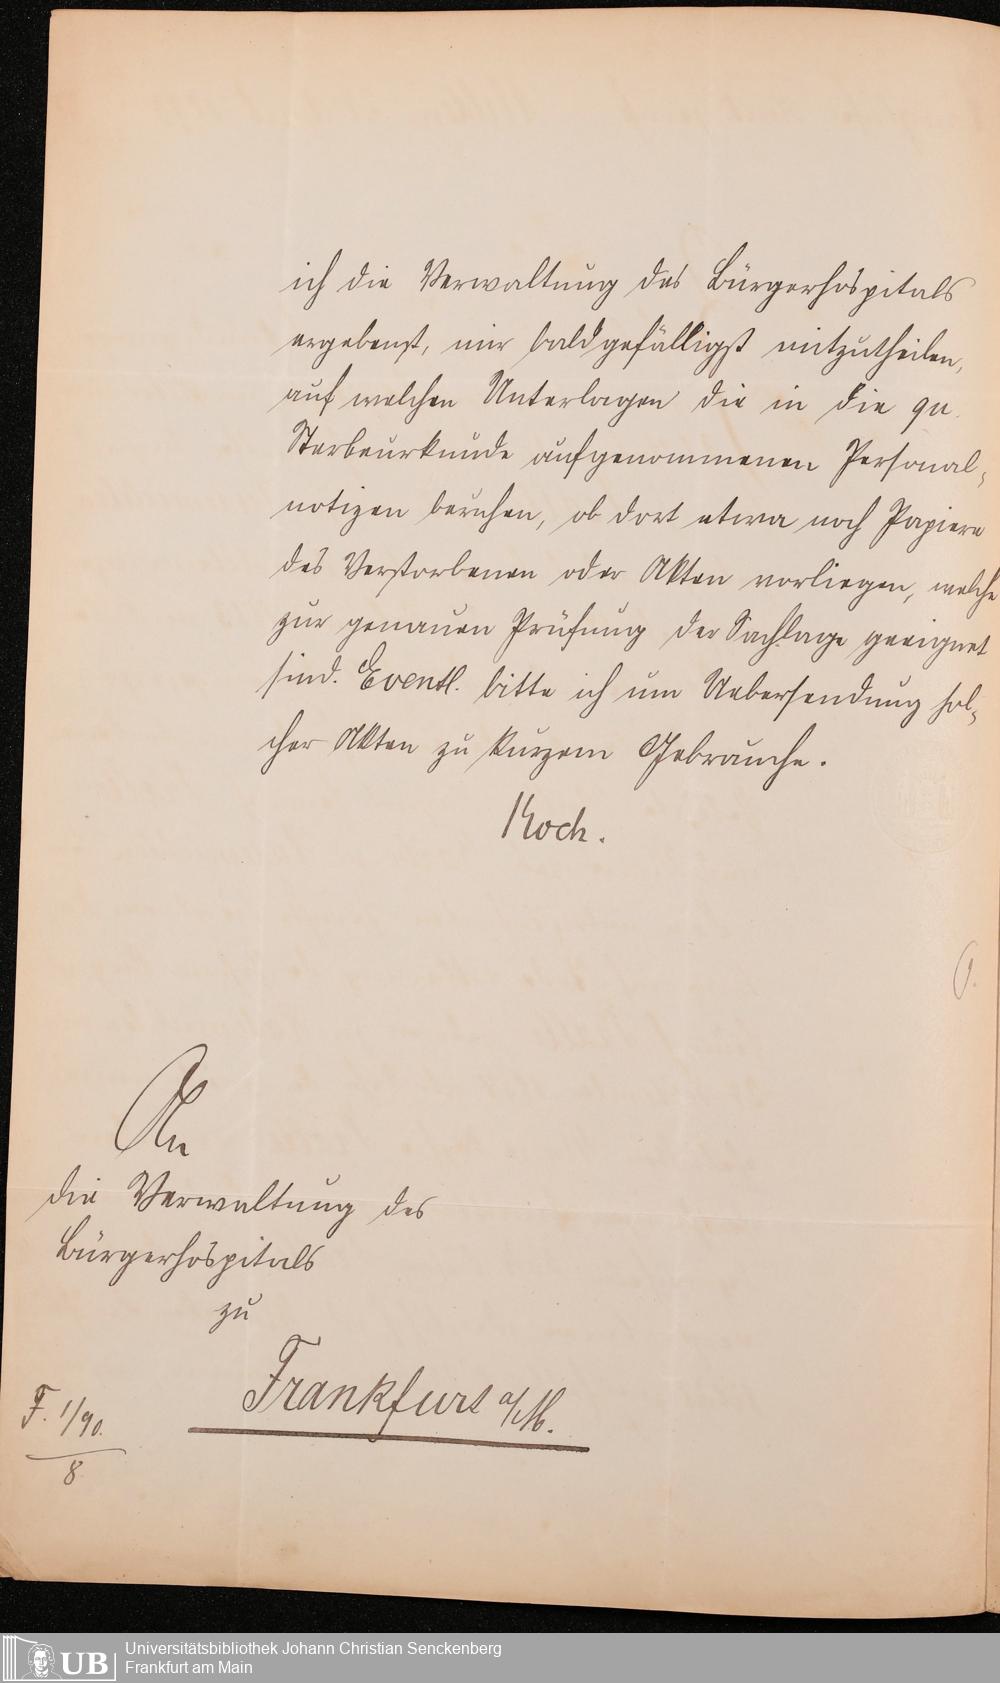 ich die Verwaltung des Bürgerhospitals
ergebenst, mir bald gefälligst mitzutheilen,
auf welchen Unterlagen die in die qu.
Sterbeurkunde aufgenommenen Personal-
notizen beruhen, ob dort etwa noch Papiere
des Verstorbenen oder Akten vorliegen, welche
zur genauen Prüfung der Sachlage geeignet
sind. Eventl. bitte ich um Uebersendung sol-
cher Akten zu kurzem Gebrauche.
Koch.
An
die Verwaltung des
Bürgerhospitals
zu
Frankfurt a/M.
F. 1/90.
8
UB
Universitätsbibliothek Johann Christian Senckenberg
Frankfurt am Main